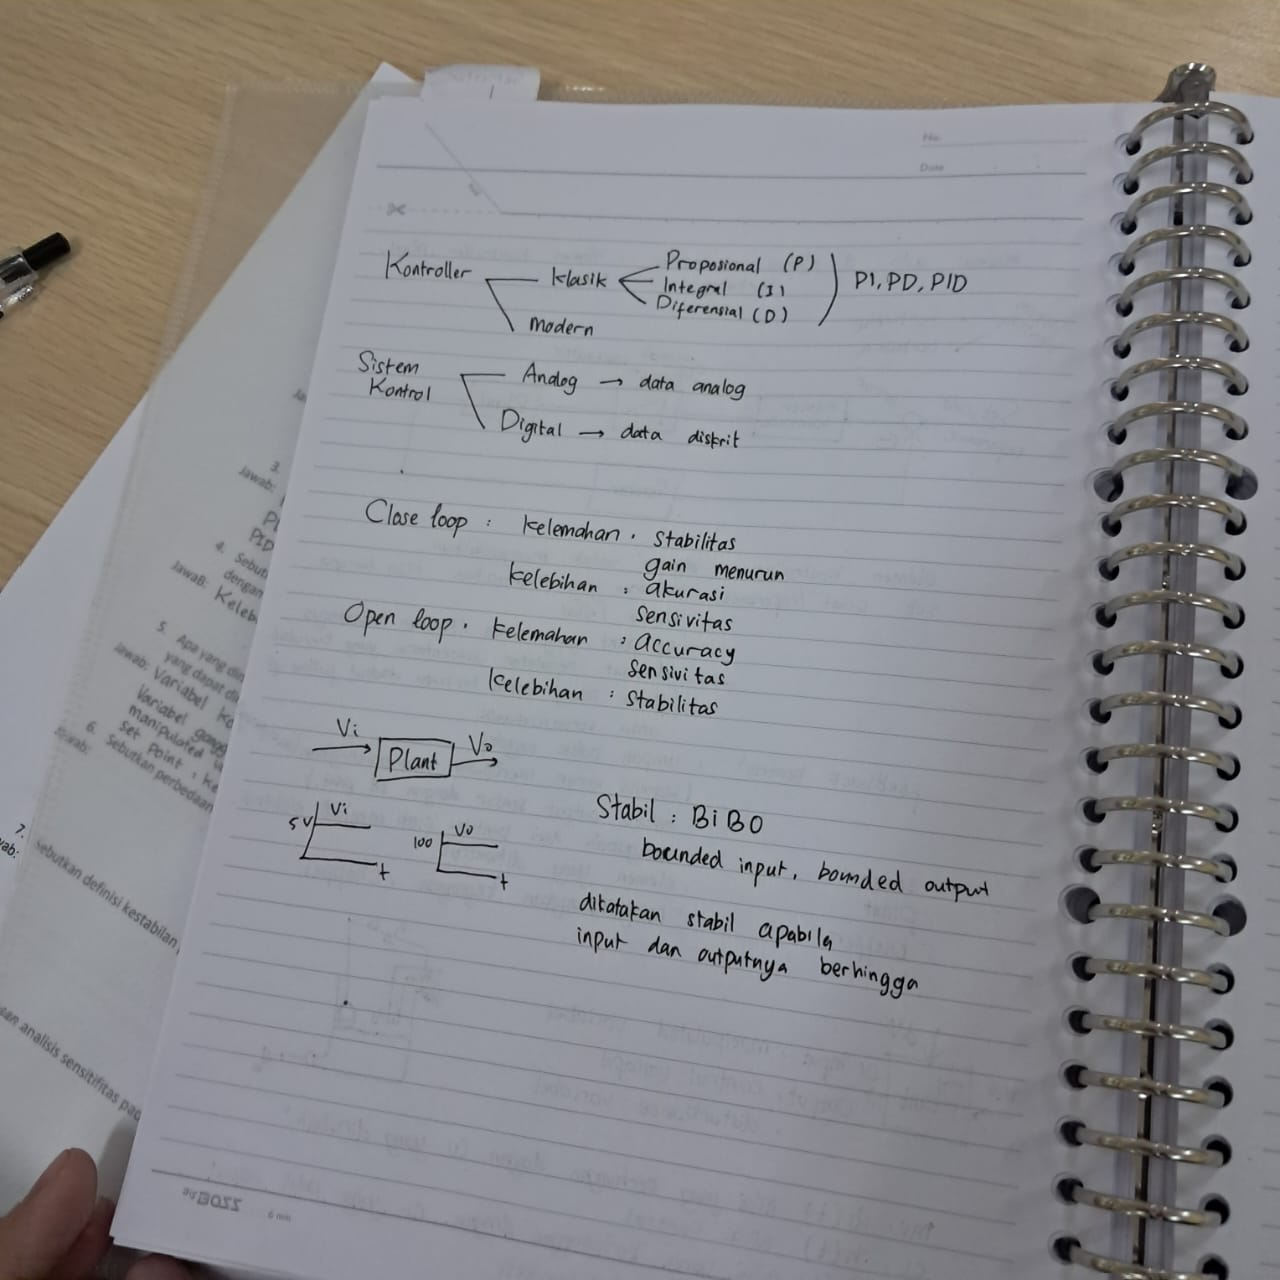 No.
Date
Kontroller
Klasik
Proposional (P)
Integral (I)
Diferensial (D)
PI, PD, PID
modern
Sistem
Kontrol
Analog → data analog
Digital → data diskrit
Close loop : kelemahan . stabilitas
gain menurun
kelebihan : akurasi
sensivitas
Open loop . kelemahan : accuracy
sensivitas
kelebihan : stabilitas
Vi
Plant
Vo
5V
Vi
t
100
Vo
t
Stabil : BiBO
bounded input, bounded output
dikatakan stabil apabila
input dan outputnya berhingga
6 mm
3.
Jawab:
PID
4. Sebut
dengan
JawaB: Keleb
5. Apa yang di
yang dapat di
Jawab: Variabel Ko
Variabel gang
manipulated
Set Point : Ke
6. Sebutkan perbedaan
Jawab:
7.
Sebutkan definisi kestabilan,
analisis sensitifitas pad